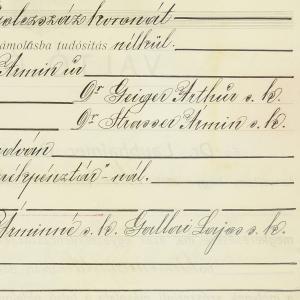 olczszáz koronát
számolásba tudósítás nélkül.
Armin úr
Dr Geiger Arthur s. k.
Dr Strasser Armin s. k.
udván
nékpénztár"-nál.
Arminné s. k. Gallai Lajos s. k.